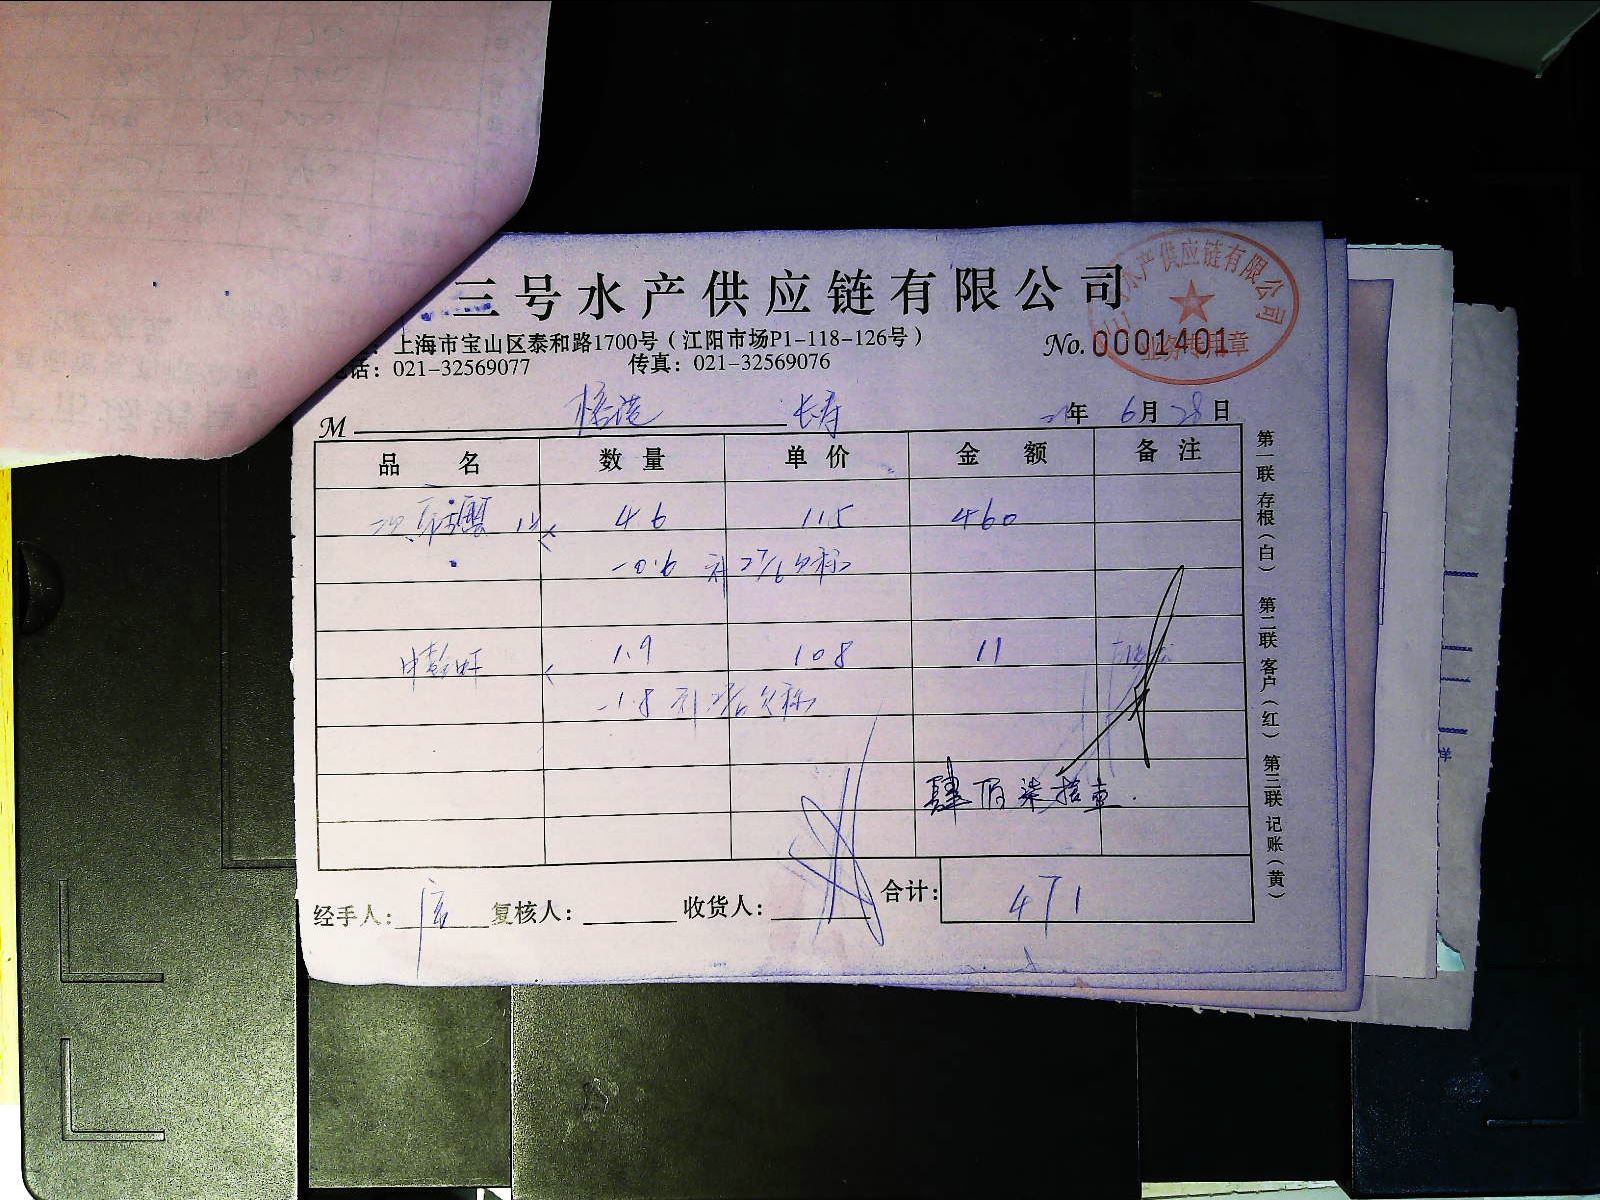 三号水产供应链有限公司
水产供应链有限公司
业务专用章
上海市宝山区泰和路1700号（江阳市场P1-118-126号）
话：021-32569077 传真：021-32569076
No. 0001401
M 长寿 年 6月 28日
品名 数量 单价 金额 备注
4.6 115 460
-0.6 补 27/6 欠称
1.9 108 11
-1.8 补 欠称
肆佰柒拾壹.
经手人： 复核人： 收货人： 合计： 471
第一联 存根（白） 第二联 客户（红） 第三联 记账（黄）